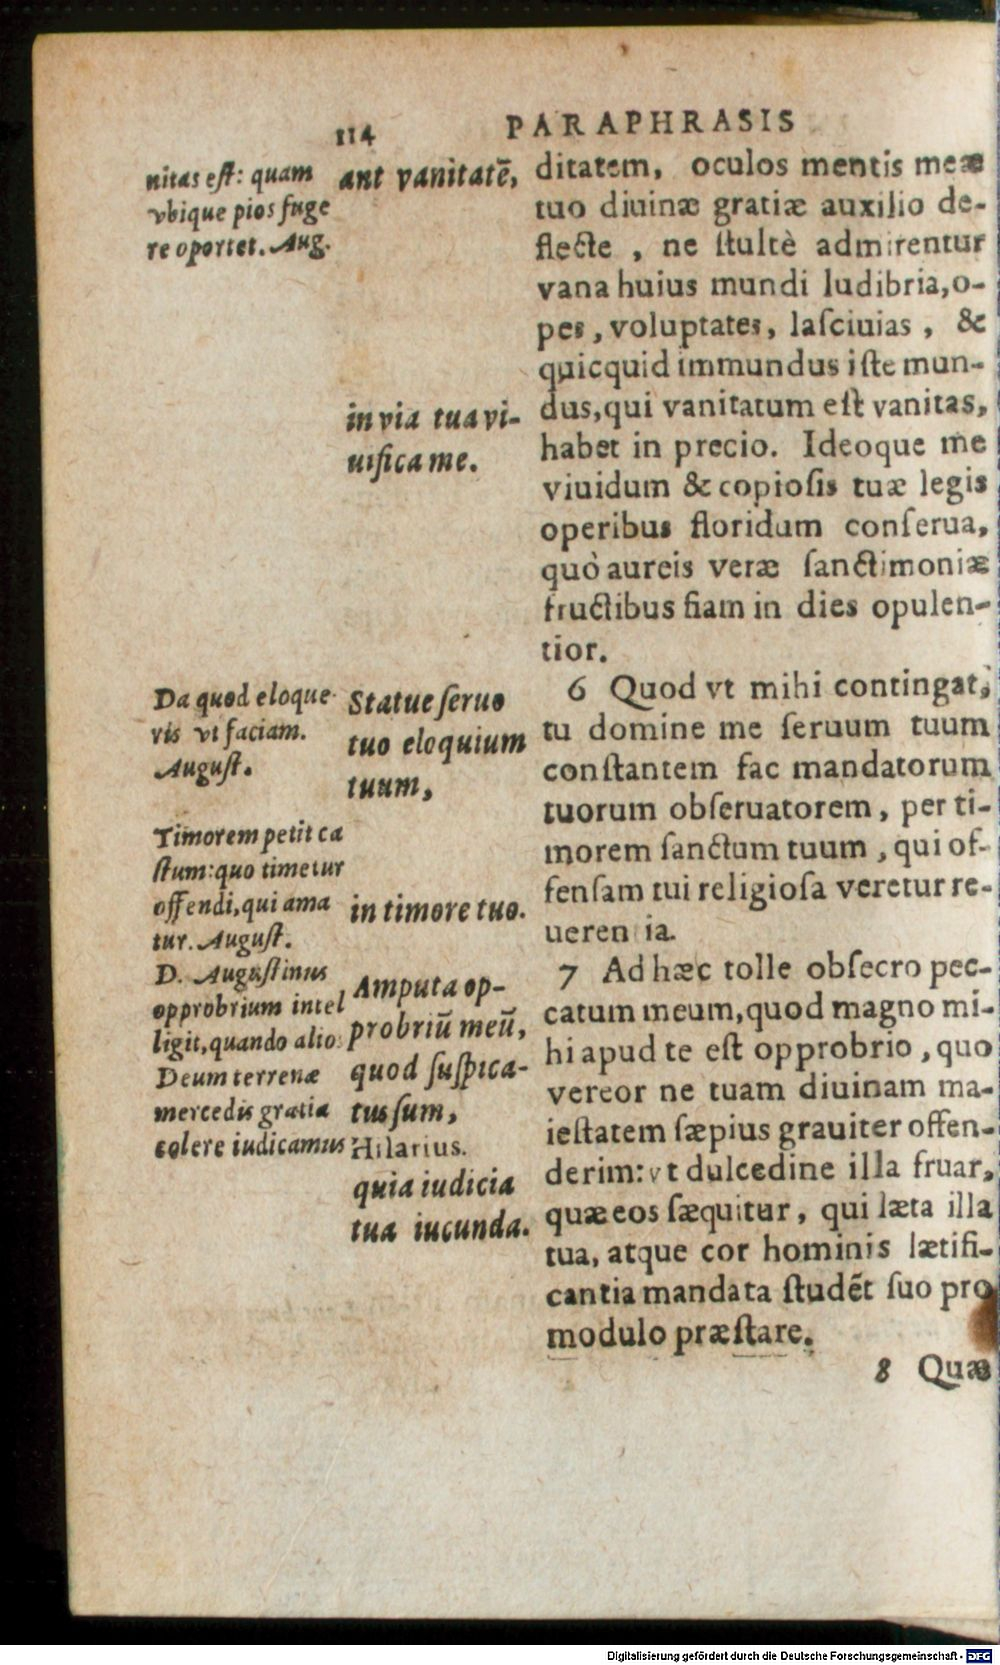 114
PARAPHRASIS
nitas eſt: quam
vbique pios fuge
re oportet. Aug.
ant vanitatē,
in via tua vi-
uifica me.
ditatem, oculos mentis meæ
tuo diuinæ gratiæ auxilio de-
flecte , ne ſtultè admirentur
vana huius mundi ludibria, o-
pes, voluptates, laſciuias , &
quicquid immundus iſte mun-
dus, qui vanitatum eſt vanitas,
habet in precio. Ideoque me
viuidum & copioſis tuæ legis
operibus floridum conſerua,
quò aureis veræ ſanctimoniæ
fructibus fiam in dies opulen-
tior.
Da quod eloque
ris vt faciam.
Auguſt.
Timorem petit ca
ſtum: quo timetur
offendi, qui ama
tur. Auguſt.
Statue ſeruo
tuo eloquium
tuum,
in timore tuo.
6 Quod vt mihi contingat,
tu domine me ſeruum tuum
conſtantem fac mandatorum
tuorum obſeruatorem, per ti-
morem ſanctum tuum , qui of-
fenſam tui religioſa veretur re-
ueren ia.
D. Auguſtinus
opprobrium intel
ligit, quando alio
Deum terrenæ
mercedis gratia
colere iudicamus
Amputa op-
probriū meū,
quod ſuſpica-
tus ſum,
Hilarius.
quia iudicia
tua iucunda.
7 Ad hæc tolle obſecro pec-
catum meum, quod magno mi-
hi apud te eſt opprobrio , quo
vereor ne tuam diuinam ma-
ieſtatem ſæpius grauiter offen-
derim: vt dulcedine illa fruar,
quæ eos ſæquitur, qui læta illa
tua, atque cor hominis lætifi-
cantia mandata ſtudēt ſuo pro
modulo præſtare.
8 Quæ
Digitalisierung gefördert durch die Deutsche Forschungsgemeinschaft - DFG